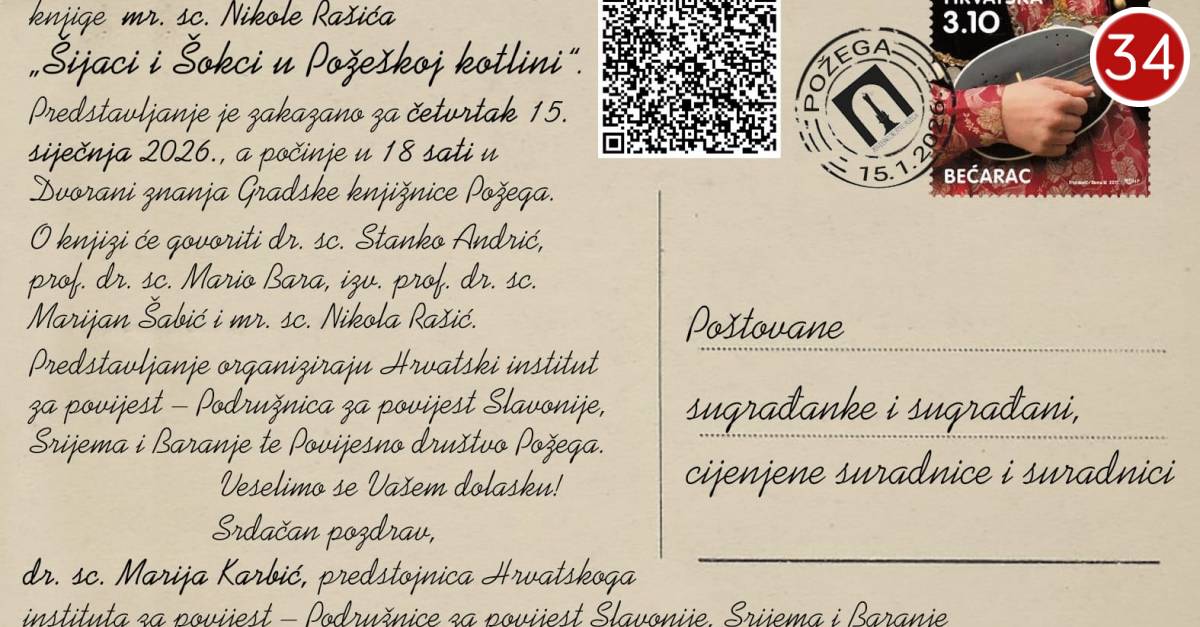 knjige mr. sc. Nikole Rašića
„Šijaci i Šokci u Požeškoj kotlini“.
Predstavljanje je zakazano za četvrtak 15.
siječnja 2026., a počinje u 18 sati u
Dvorani znanja Gradske knjižnice Požega.
O knjizi će govoriti dr. sc. Stanko Andrić,
prof. dr. sc. Mario Bara, izv. prof. dr. sc.
Marijan Šabić i mr. sc. Nikola Rašić.
Predstavljanje organiziraju Hrvatski institut
za povijest – Podružnica za povijest Slavonije,
Srijema i Baranje te Povijesno društvo Požega.
Veselimo se Vašem dolasku!
Srdačan pozdrav,
dr. sc. Marija Karbić, predstojnica Hrvatskoga
instituta za povijest – Podružnice za povijest Slavonije, Srijema i Baranje
POŽEGA
15.1.2026.
HRVATSKA
3.10
34
BEĆARAC
Poštovane
sugrađanke i sugrađani,
cijenjene suradnice i suradnici